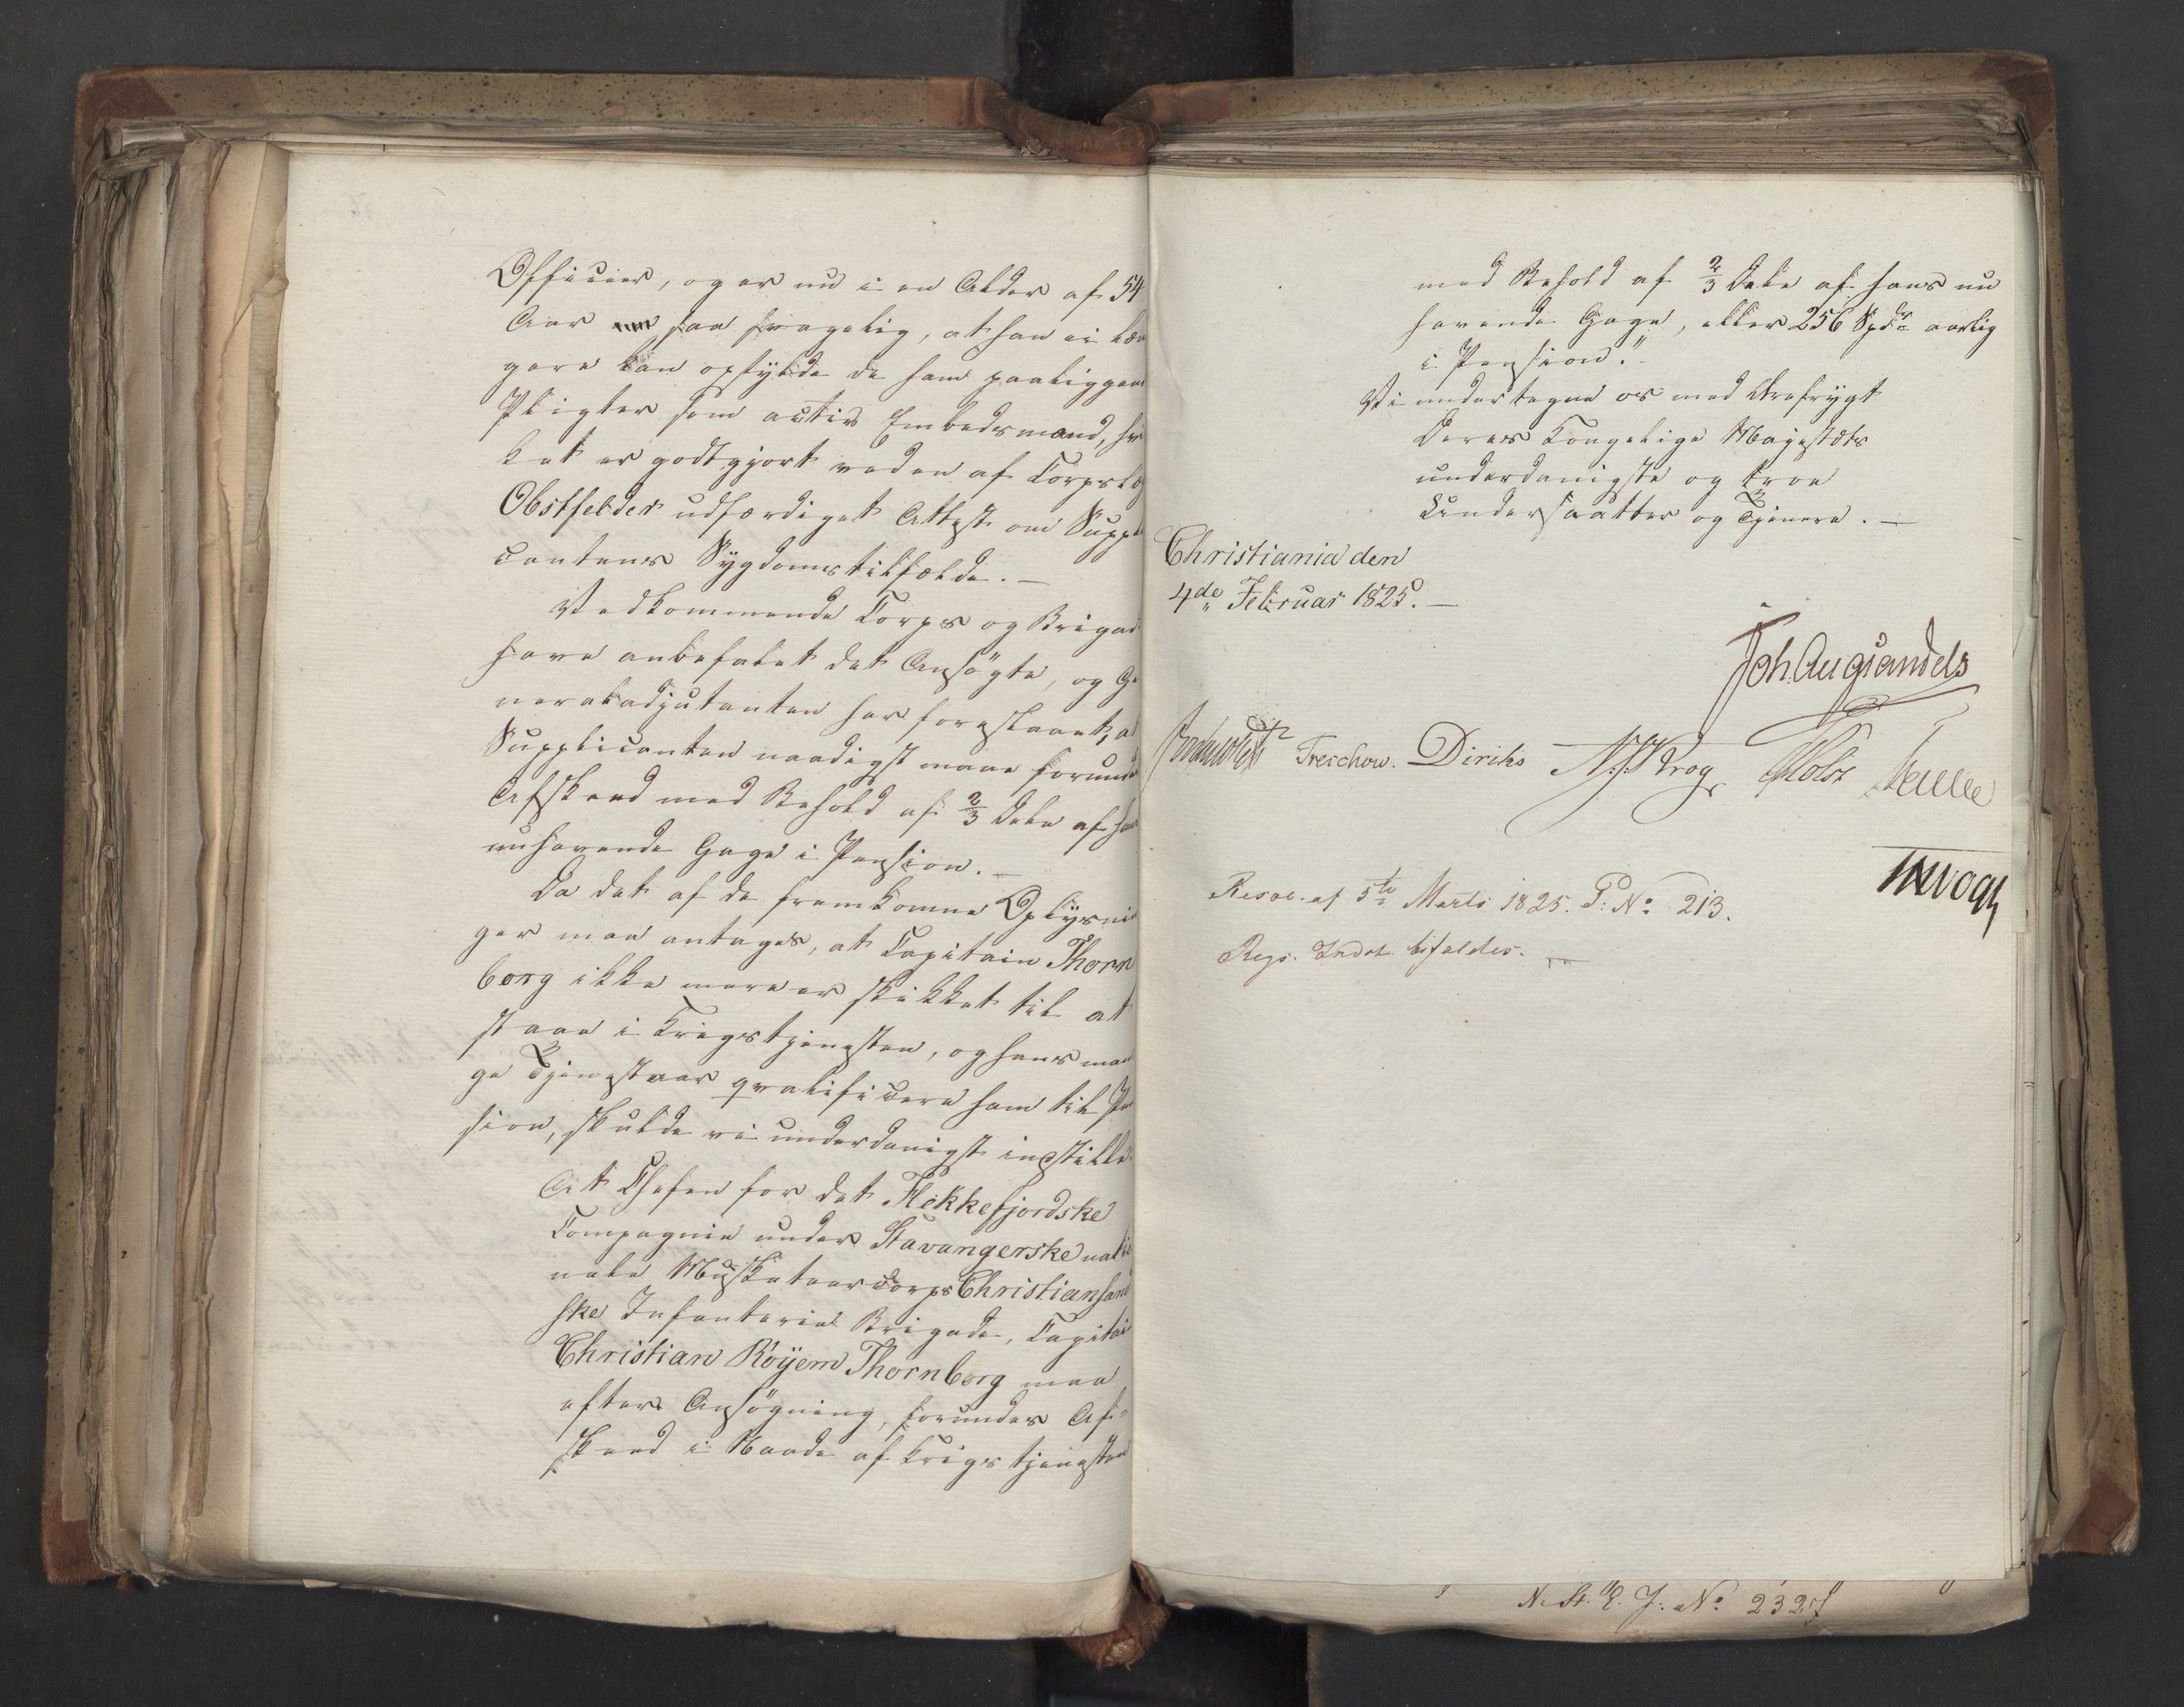 Officier, og er nu i en Alder af 54
Aar saa svagelig, at han ei læn
gere kan opfylde de ham paaliggen
Pligter som activ Embedsmand, hvi
ket er godtgjort ved en af Corpslæ
Obstfelder udfærdiget Attest om Suppli
cantens Sygdomstilfælde. —
Vedkommende Corps og Brigad
have anbefalet det Ansøgte, og Ge
neraladjutanten har foreslaaet, at
Supplicanten naadigst maae forundes
Afskeed med Behold af 2/3 Dele af hans
nuhavende Gage i Pension. —
Da det af de fremkomne Oplysnin
ger maa antages, at Capitain Thorn
borg ikke mere er skikket til at
staae i Krigstjenesten, og hans man
ge Tjenestaar qvalificere ham til Pen
sion, skulde vi underdanigst indstille:
At Chefen for det Flekkefjordske
Compagnie under Stavangerske natio
nale Musketeercorps Christiansand
ske Infanterie Brigade, Capitai
Christian Röyem Thornborg maa
efter Ansøgning, forundes Af-
skeed i Naade af Krigstjenesten
med Behold af 2/3 Dele af hans nu
havende Gage, eller 256 Spdr aarlig
i Pension."
Vi undertegne os med Ærefrygt
Deres Kongelige Majestæts
underdanigste og troe
Undersaatter og Tjenere. —
Christiania den
4de Februar 1825. —
Joh. Aug Sandels
Treschow. Diriks Krog Holst
Resol. af 5te Marts 1825. P: No 213.
Regs. Indst. bifaldes.
JHVogt
N. St. E. J: No 232